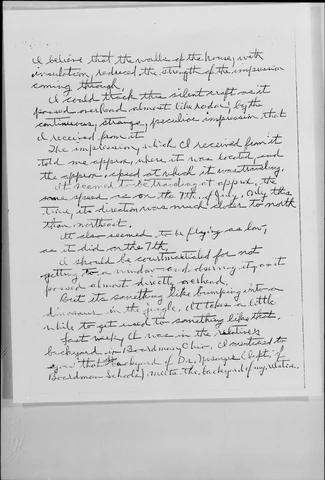 I believe that the walls of the house, with
insulation, reduced the strength of the impression
coming through.
I could track this silent craft as it
passed overhead almost like radar by the
continuous, strange, peculiar impression that
I received from it
The impression which I received from it
told me approx. where it was located, and
the approx. speed at which it was traveling.
It seemed to be traveling at approx. the
same speed as on the 7th of July. Only this
time, its direction was much closer to north
than northeast.
It also seemed to be flying as low,
as it did on the 7th.
I should be courtmartialed for not
getting to a window and observing it, as it
passed almost directly overhead.
But its something like bumping into a
dinosaur in the jungle. It takes a little
while to get used to something like that.
Last week, I was in the relatives
backyard in Boardman, Ohio. I mentioned to
you that backyard of Dr. (Supt. of
Boardman Schools) meets the backyard of my relative.